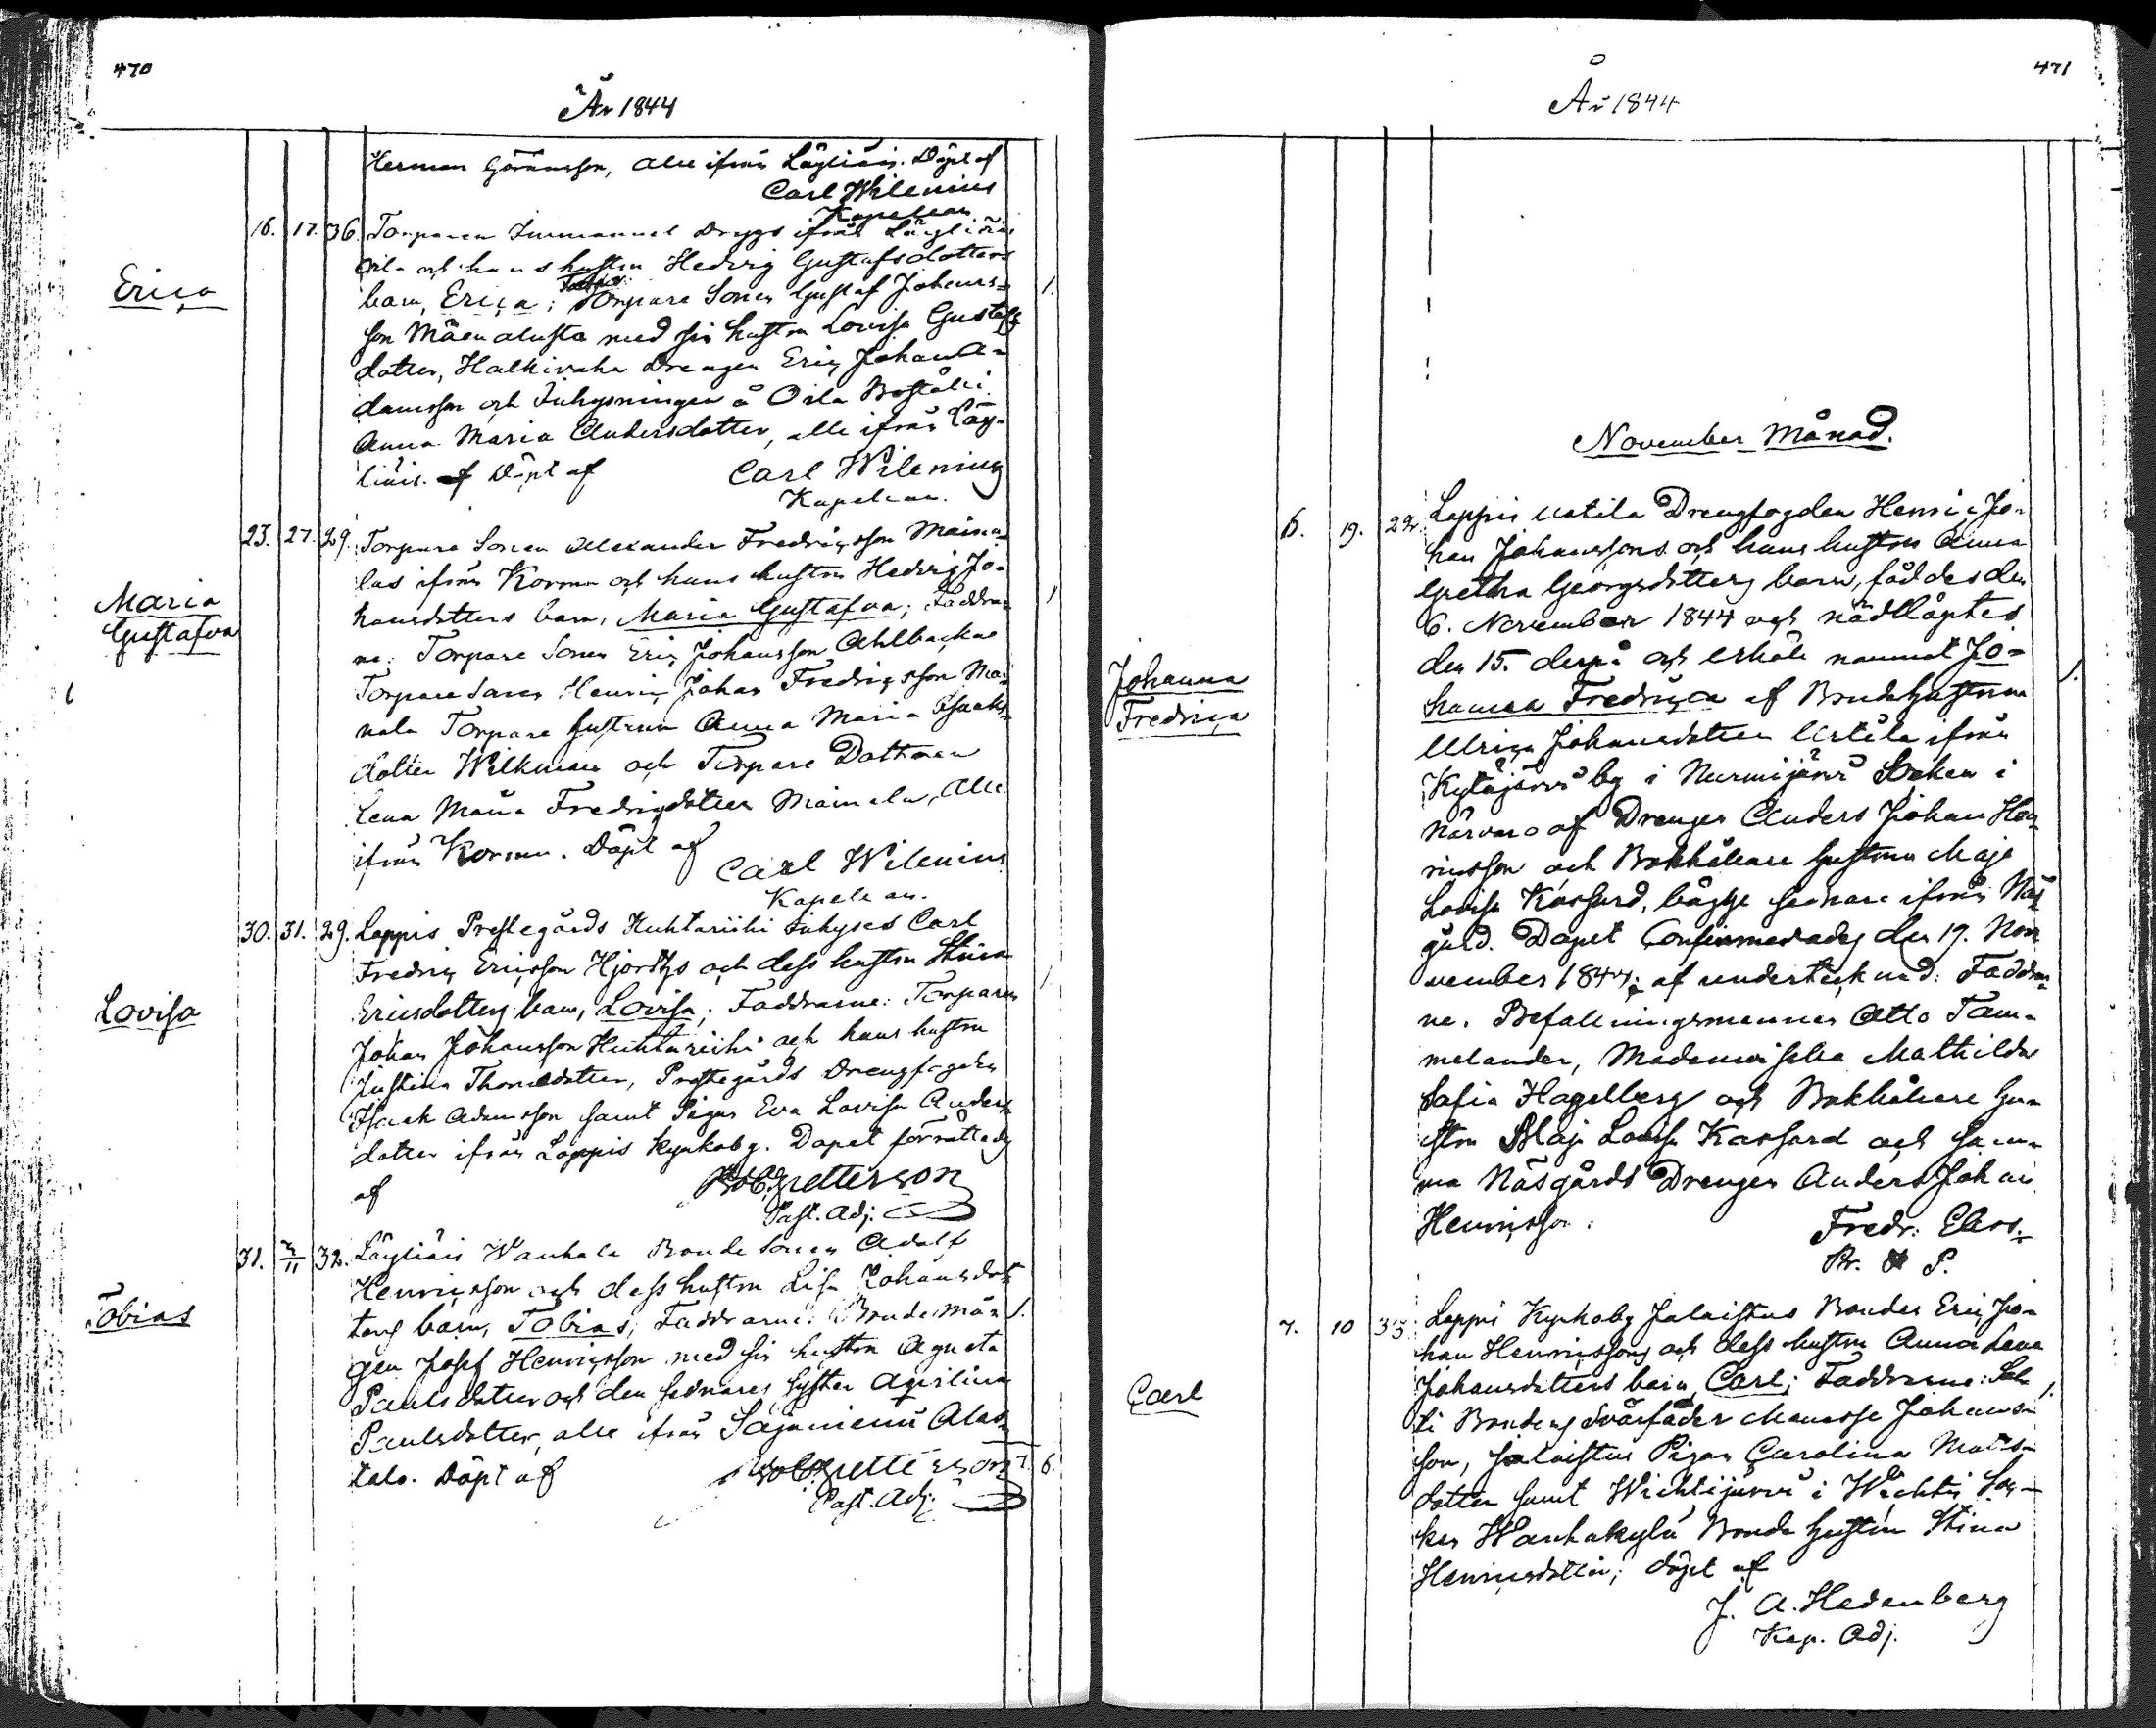 470
År 1844
Herman Göransson, alle ifrån Läyliäis. Döpt af
Carl Wilenius
Kapellan
Erica
16. 17. 36. Torparen Immanuel Dryggs ifrån Läyliäis
Oila och hans hustru Hedvig Gustafsdotters
barn, Erica; Torpare Sonen Gustaf Johans-
son Mäenalusta med sin hustru Lovisa Gustafs
dotter, Halkivaha Drengen Eric Johan A-
damsson och Inhysningen å Oila Boställe
Anna Maria Andersdotter, alle ifrån Läy-
liäis. Döpt af Carl Wilenius
Kapellan.
1.
Maria
Gustafva
23. 27. 29. Torpare Sonen Alexander Fredricsson Maine-
las ifrån Kormu och hans hustru Hedvig Jo-
hansdotters barn, Maria Gustafva; Faddrar-
ne: Torpare Sonen Eric Johansson Ahlbacka
Torpare Sonen Henric Johan Fredricsson Mai-
nala Torpare hustrun Anna Maria Isaaks
dotter Wilkman och Torpare Dottren
Lena Maria Fredricsdotter Mainela, Alle
ifrån Kormu. Döpt af
Carl Wilenius
Kapellan.
1
Lovisa
30. 31. 29. Loppis Prestegårds Huhtariihi Inhyses Carl
Fredric Ericsson Hjorths och dess hustru Stina
Ericsdotters barn, Lovisa; Faddrarne: Torparen
Johan Johansson Huhtariihi och hans hustru
Justina Thomedotter, Prestegårds Drengfogden
Isaak Adamsson samt Pigan Eva Lovisa Anders
dotter ifrån Loppis Kyrkoby. Dopet förrättades
af petterson
Past. Adj.
1
Tobias
31. 2/11 32. Läyliäis Wanhala Bonde Sonen Adolf
Henricsson och dess hustru Lisa Johansdot
ters barn, Tobias; Faddrarne: Bonde Må-
gen Josef Henricsson med sin hustru Agneta
Paulsdotter och den sednares syster Aprilina
Paulsdotter, alle ifrån Sajaniemi Alas-
talo. Döpt af petterson
Past. Adj.
1.
7. 6.
471
År 1844
November Månad.
Johanna
Fredrica
6. 19. 22. Loppis Uotila Drengfogden Henric Jo-
han Johanssons och hans hustru Anna
Gretha Georgsdotters barn, föddes den
6. November 1844 och nöddöptes
den 15. derpå och erhöll namnet Jo-
hanna Fredrica af Bondehustrun
Ulrica Johansdotter Urtila ifrån
Kytäjärvi by i Nurmijärvi Socken i
närvaro af Drengen Anders Johan Hen-
ricsson och Bokhållare hustrun Maja
Lovisa Kassard, bägge sednare ifrån Näs
gård. Dopet Confirmerades den 19. No-
vember 1844. af undertecknad: Faddrar-
ne: Befallningsmannen Otto Tam-
melander, Mademoiselle Mathilda
Sofia Hagelberg och Bokhållare hu-
stru Maja Lovisa Kassard och sam-
ma Näsgårds Drengen Anders Johan
Henricsson: Fredr: Elers.
Pr. P.
1.
Carl
7. 10 35. Loppi Kyrkoby Jalaistus Bonden Eric Jo-
han Henricssons och dess hustru Anna Lena
Johansdotters barn Carl; Faddrarne: Sal-
ti Bondens Svärfader Manasse Johans-
son, Jalaistus Pigan Carolina Mats-
dotter samt Wichtijärvi i Wichtis Soc-
ken Wanhakylä Bonde hustru Stina
Henricsdotter; döpt af
J. A. Hedenberg
Kap. Adj.
1.